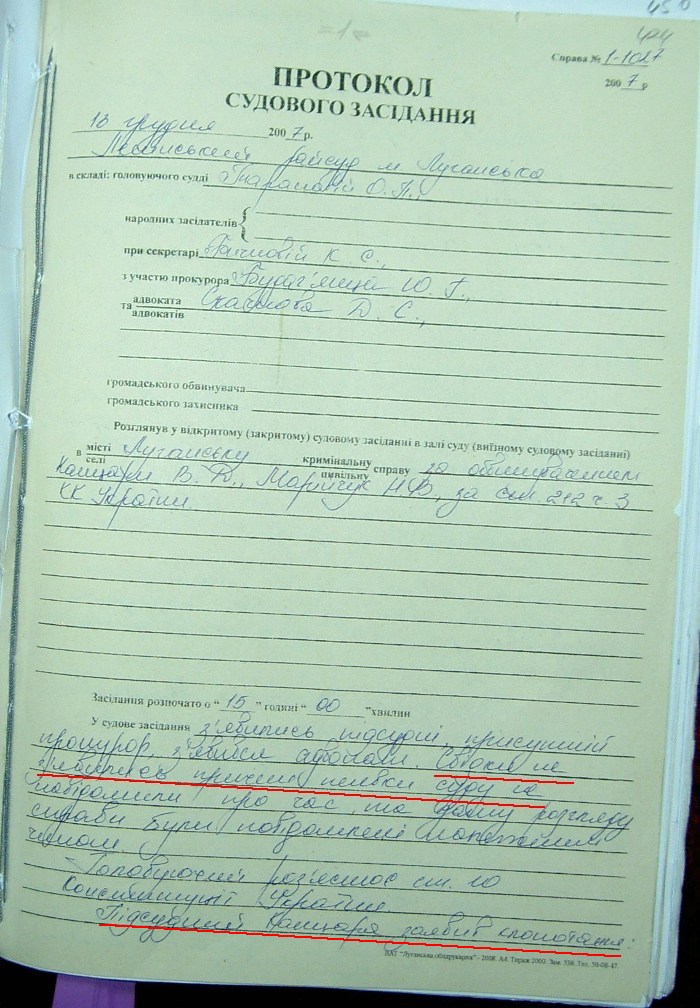 450
424
=1=
Справа № 1-1027
2007 р
ПРОТОКОЛ
СУДОВОГО ЗАСІДАННЯ
13 грудня 2007 р.
Ленінський райсуд м Луганська
в складі: головуючого судді О. П.,
народних засідателів {
при секретарі К. С.,
з участю прокурора Ю. Г.,
та адвоката Скачкова Д. С.,
адвокатів
громадського обвинувача
громадського захисника
Розглянув у відкритому (закритому) судовому засіданні в залі суду (виїзному судовому засіданні)
в місті Луганську кримінальну справу за обвинуваченням
селі цивільну
Камдаря В. Д., Марійчук Н.В, за ст. 212 ч. 3
КК України.
Засідання розпочато о “ 15 ” годині “ 00 ” хвилин
У судове засідання з'явились підсудні, присутній
прокурор, з'явився адвокат. Свідки не
з'явились причини неявки суду не
повідомили про час та дату розгляду
справи були повідомлені належним
чином.
Головуючий роз'яснює ст. 10
Конституції України
Підсудний заявив клопотання:
ВАТ "Луганська облдрукарня" - 2006. А4. Тираж 2000. Зам. 536. Тел. 50-08-47.